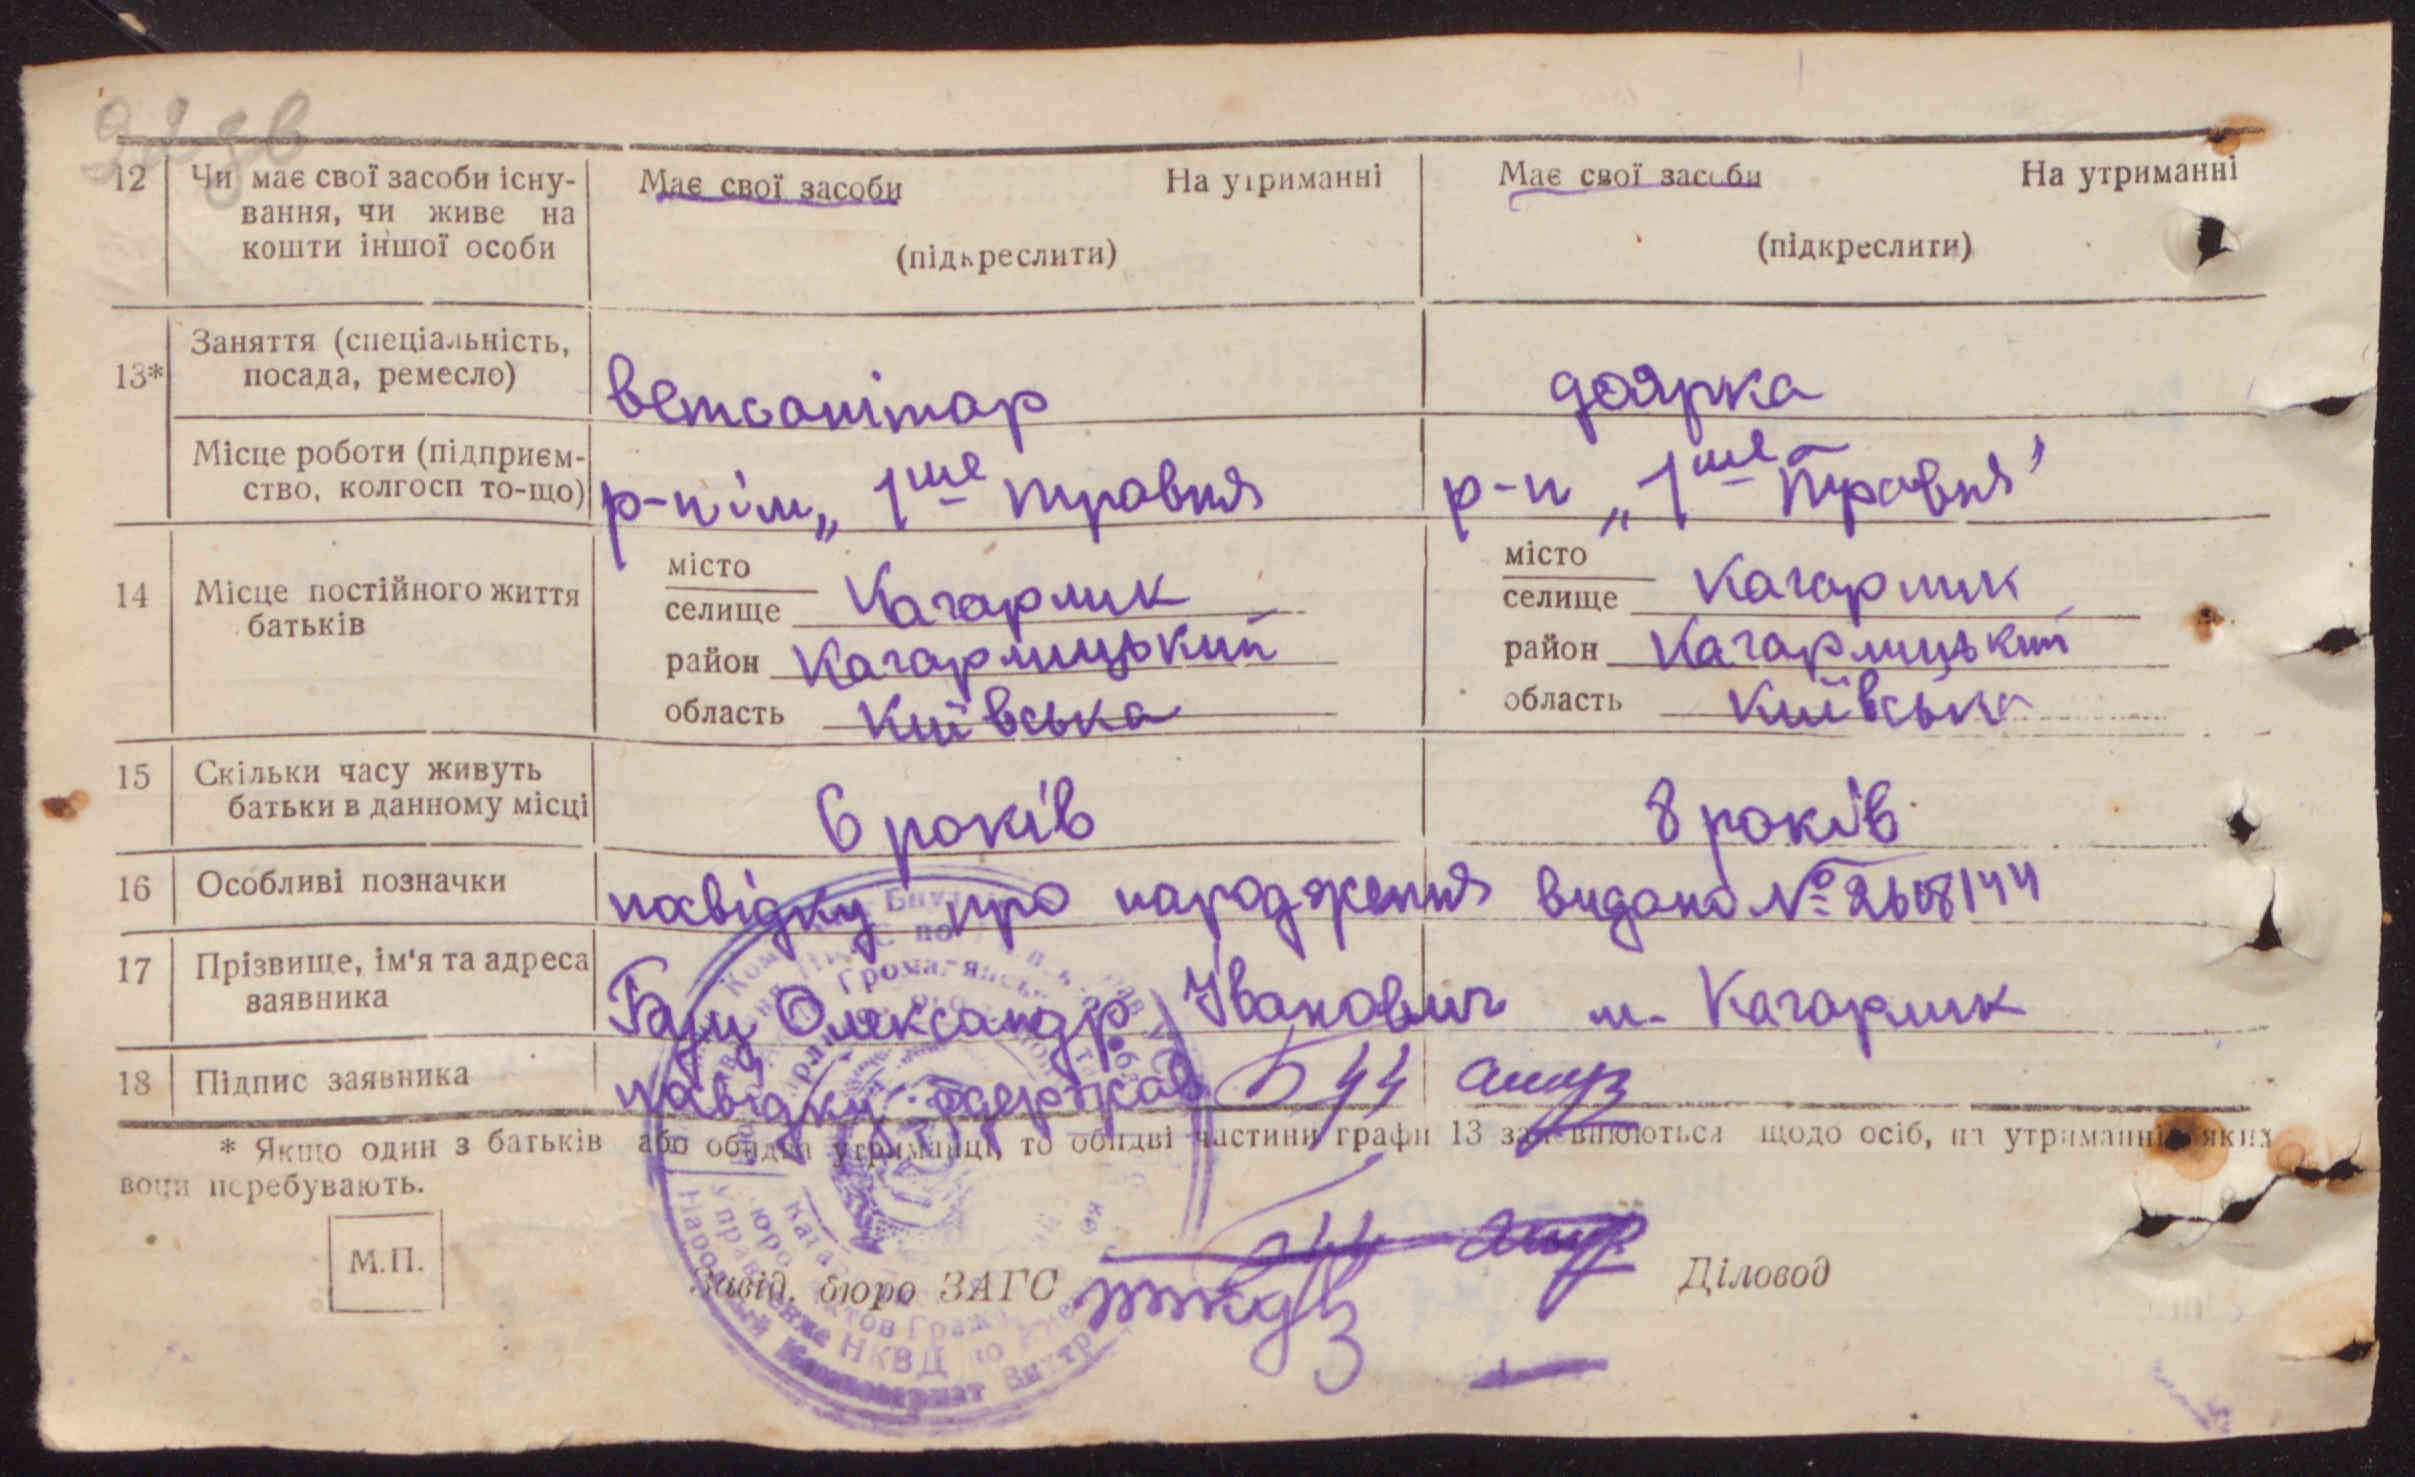 12 Чи має свої засоби існу-
вання, чи живе на
кошти іншої особи
Має свої засоби На утриманні
(підкреслити)
Має свої засоби На утриманні
(підкреслити)
13* Заняття (спеціальність,
посада, ремесло)
ветсанітар
доярка
Місце роботи (підприєм-
ство, колгосп то-що)
р-п ім „ 1ше травня
р-п „ 1ше травня"
14 Місце постійного життя
батьків
місто
селище Кагарлик
район Кагарлицький
область Київська
місто
селище Кагарлик
район Кагарлицький
область Київська
15 Скільки часу живуть
батьки в данному місці
6 років
8 років
16 Особливі позначки
повідку про народження видано №
17 Прізвище, ім'я та адреса
заявника
Олександр Іванович м. Кагарлик
18 Підпис заявника
повідку одержав
* Якщо один з батьків або обидва утриманці, то обидві частини графи 13 заповнюються щодо осіб, на утриманні яких
вони перебувають.
М.П.
Завід. бюро ЗАГС
Діловод